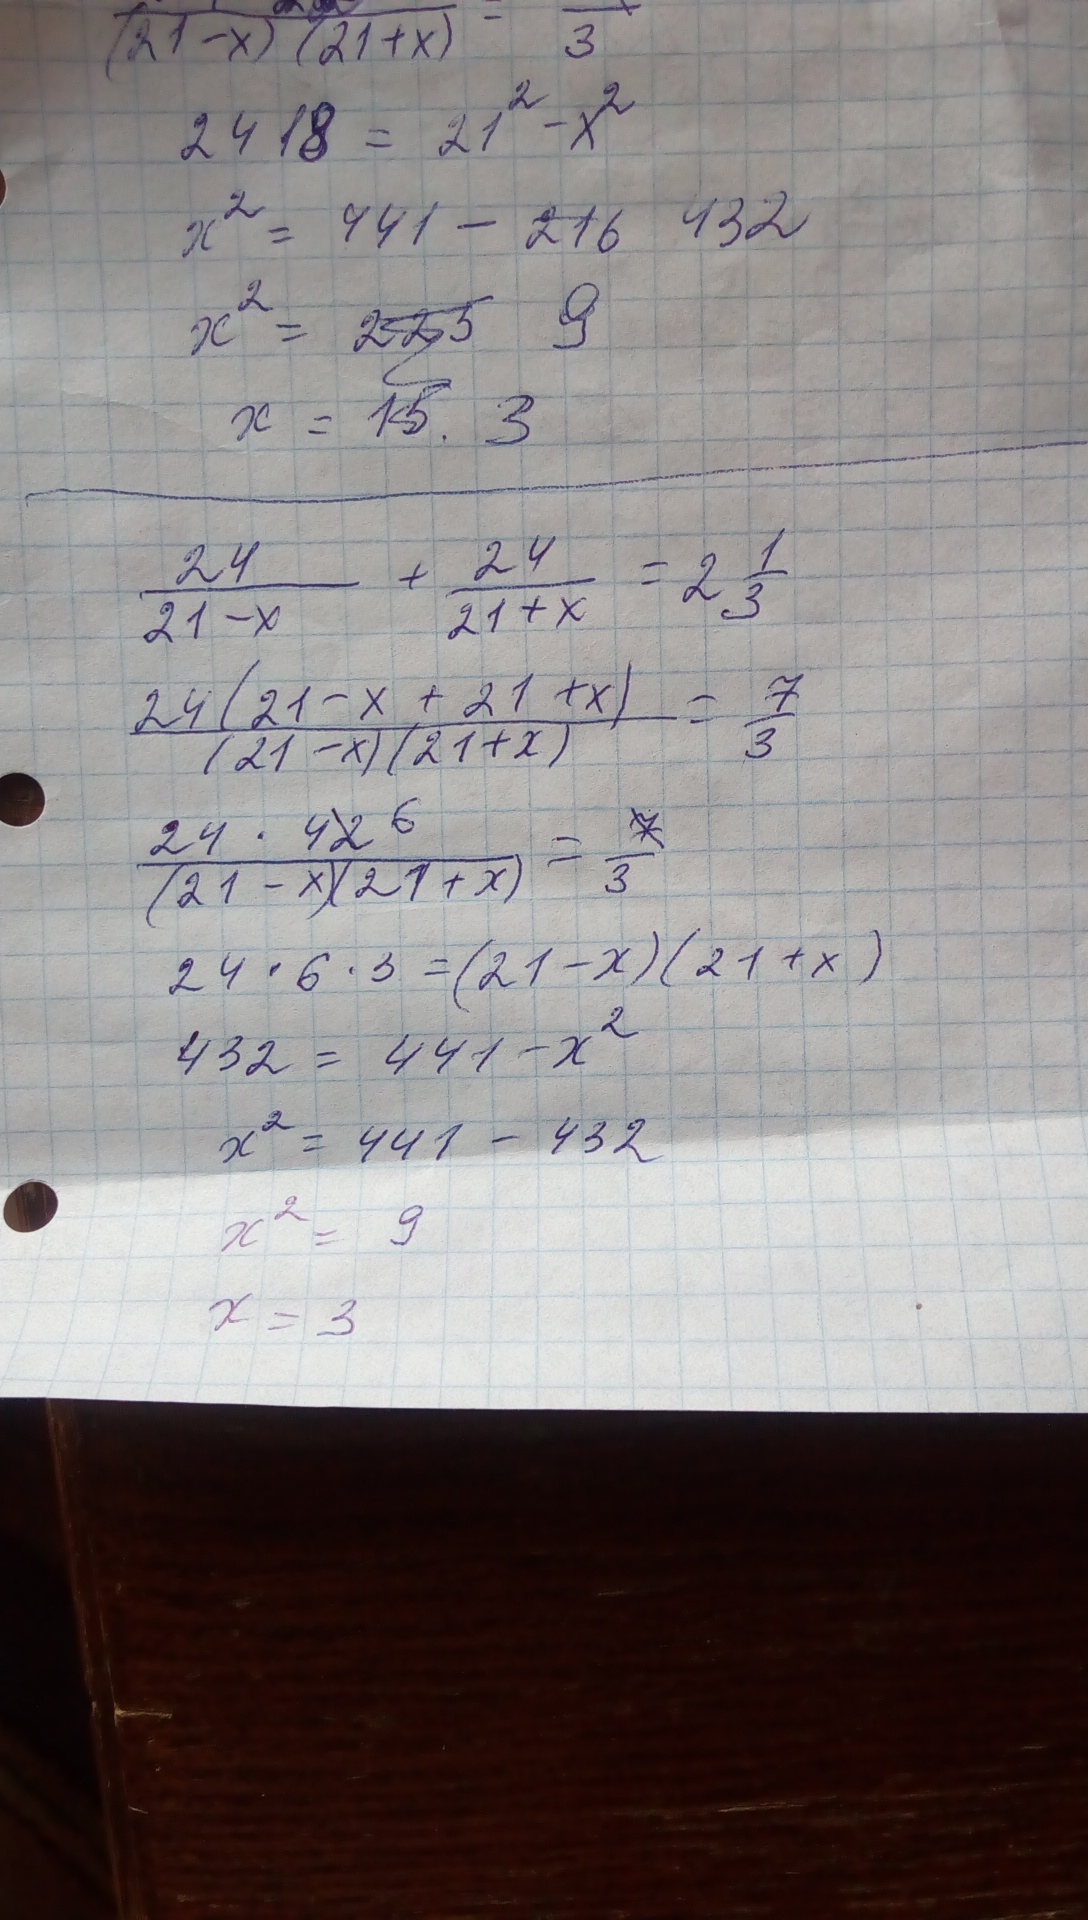 (21-x)(21+x) = 3
24 18 = 21² - x²
x² = 441 - 216 432
x² = 225 9
x = 15. 3
24/(21-x) + 24/(21+x) = 2 1/3
24(21-x+21+x)/(21-x)(21+x) = 7/3
24 · 42 6/(21-x)(21+x) = 7/3
24·6·3=(21-x)(21+x)
432 = 441 - x²
x² = 441 - 432
x² = 9
x = 3